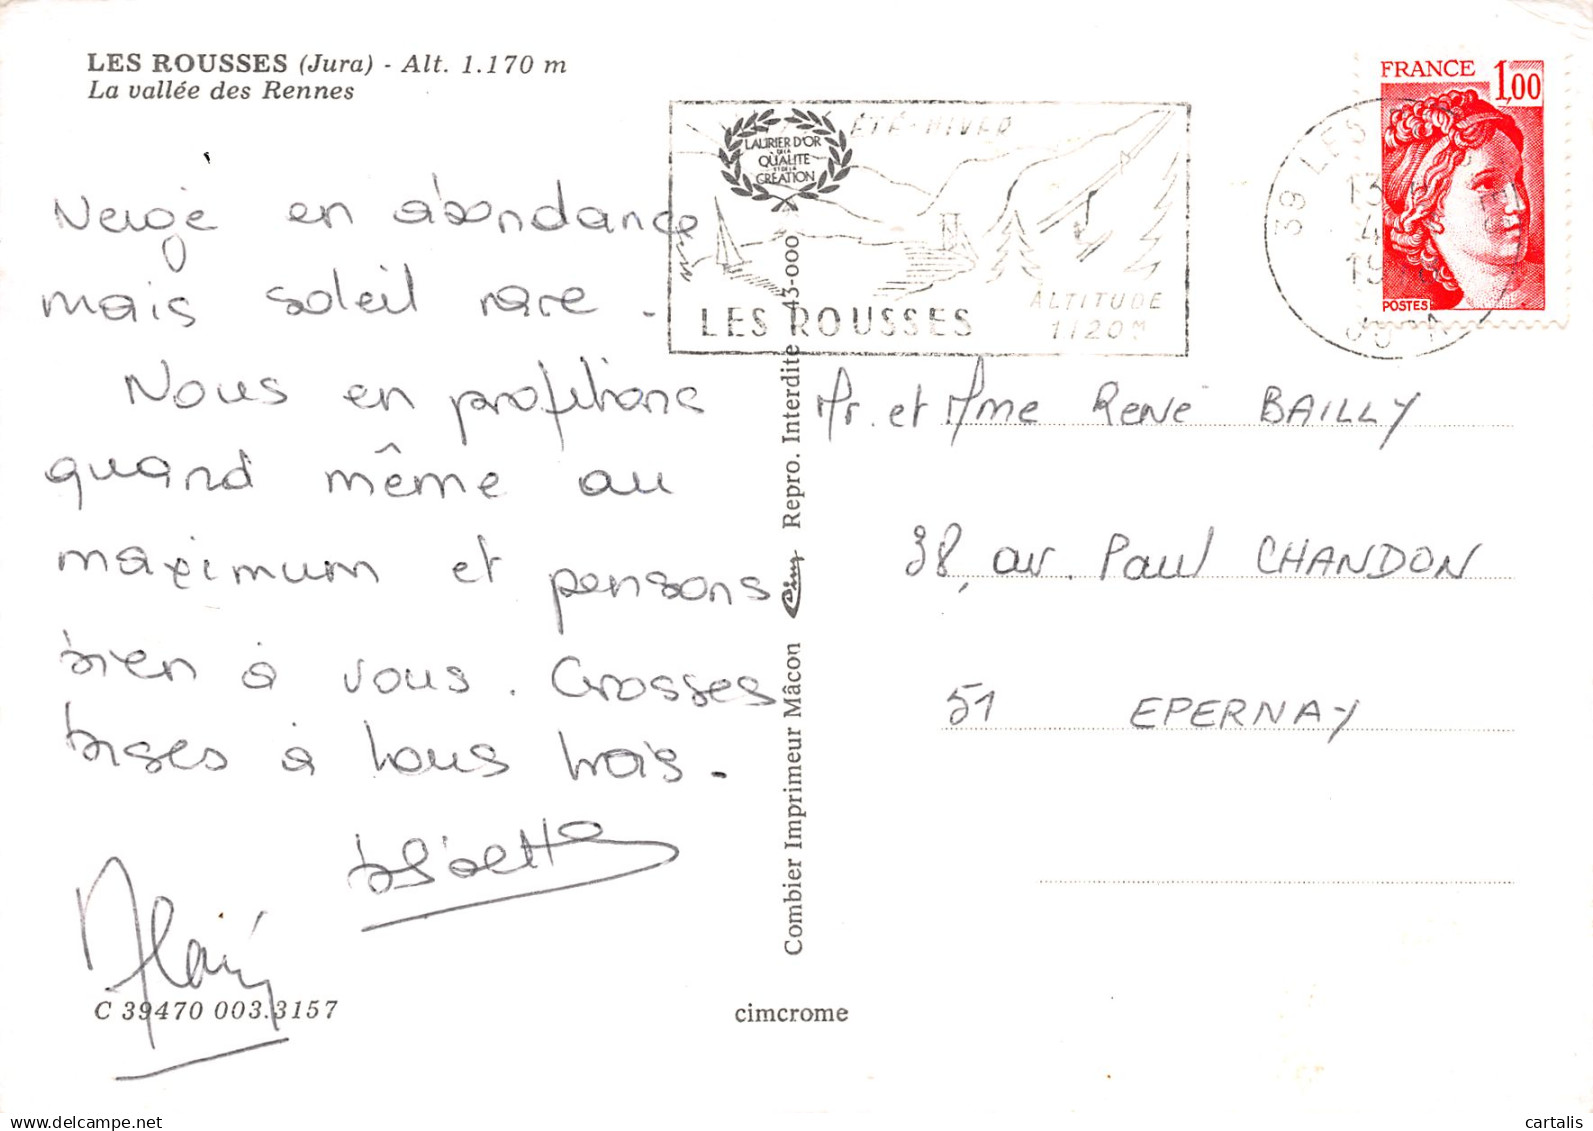 LES ROUSSES (Jura) - Alt. 1.170 m
La vallée des Rennes
Neige en abondance
mais soleil rare.
Nous en profitons
quand même au
maximum et pensons
bien à vous. Grosses
bises à tous trois.
Alain
C 39470 003.3157
cimcrome
Combier Imprimeur Mâcon Cim Repro. Interdite 43-000
ÉTÉ-HIVER
LAURIER D'OR
DE LA
QUALITE
ET DE LA
CREATION
LES ROUSSES
ALTITUDE
1120M
39 LES
13
4
19
FRANCE 1,00
POSTES
Mr. et Mme René BAILLY
38, av. Paul CHANDON
51 EPERNAY
www.delcampe.net
cartalis